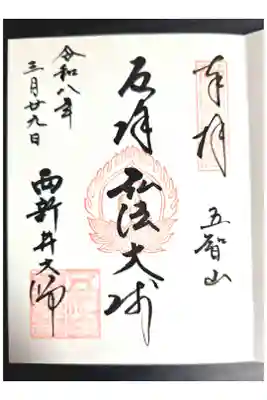 奉拝
五智山
厄除 弘法大師
令和八年
三月廿九日
西新井大師